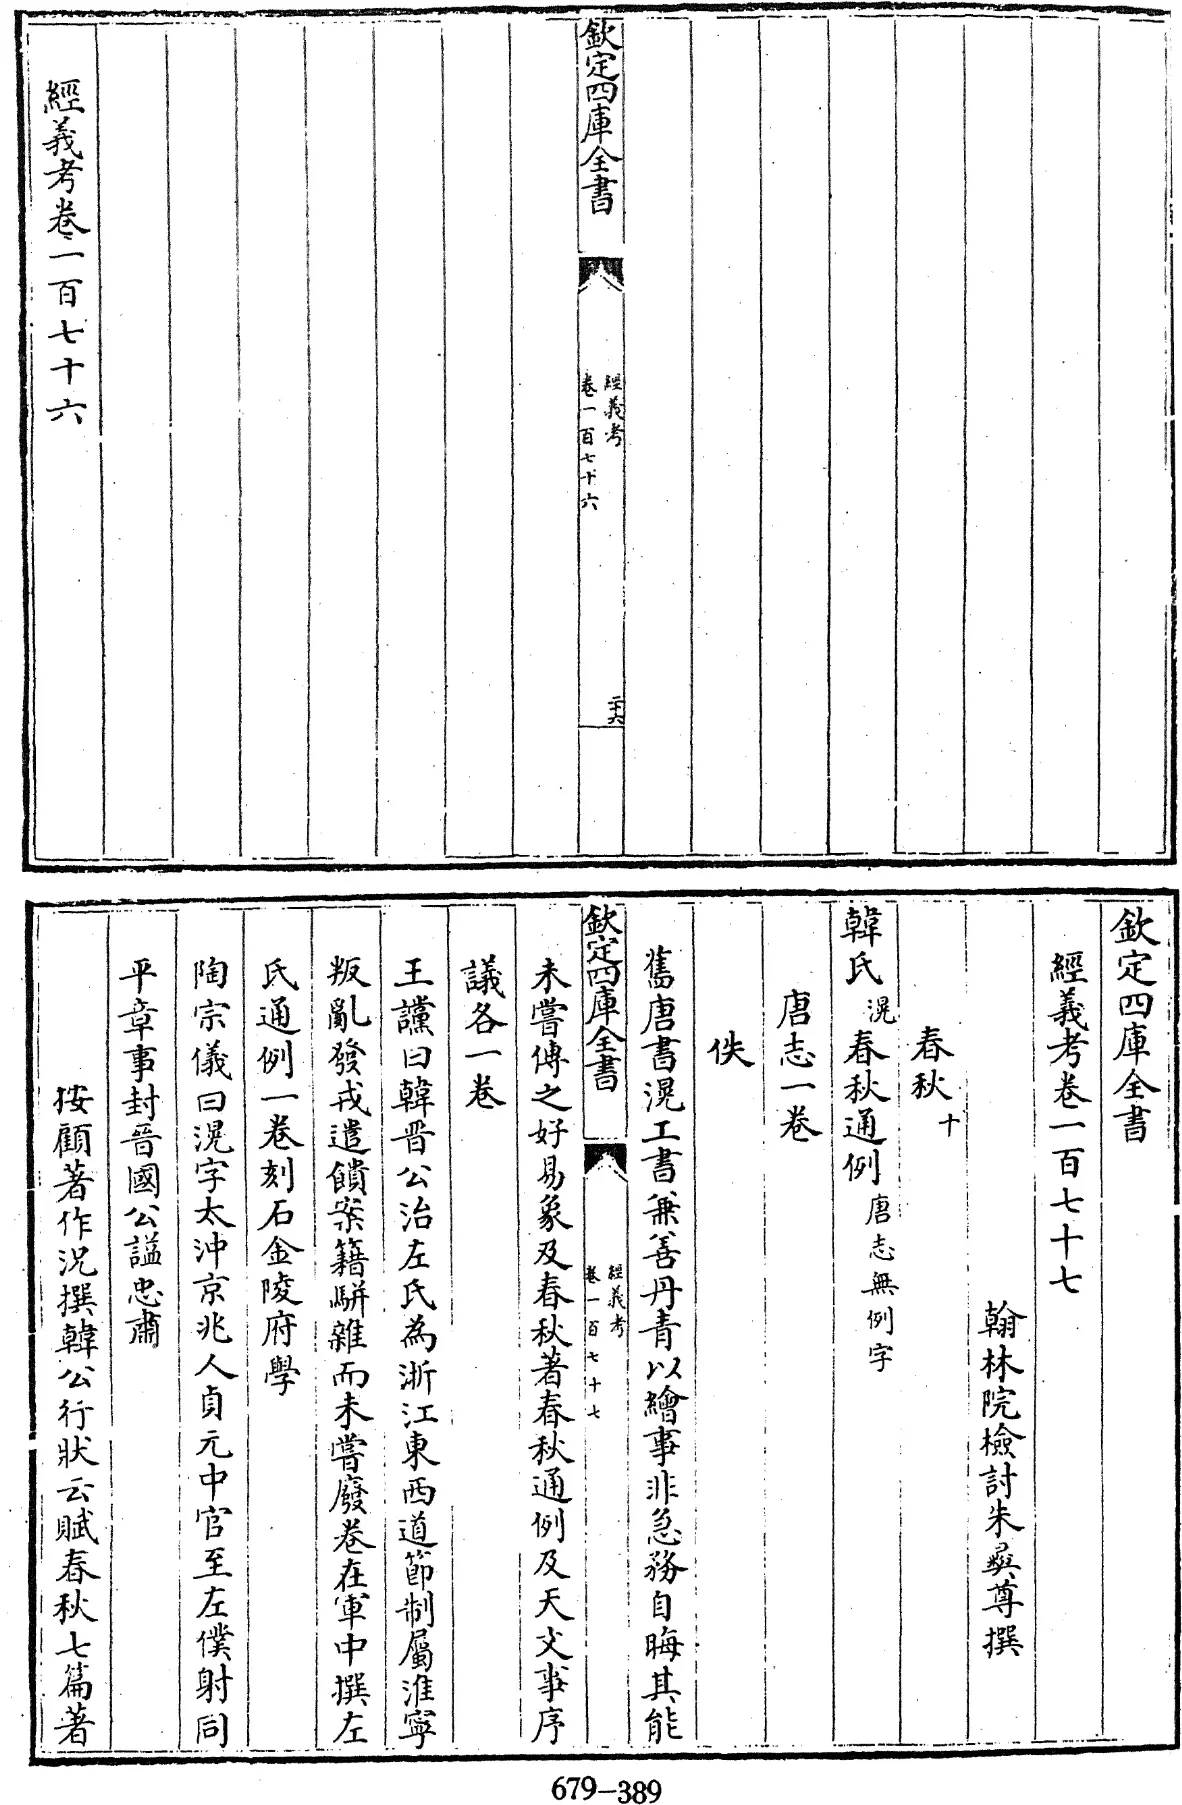 欽定四庫全書
經義考
卷一百七十六
二十六
經義考卷一百七十六
欽定四庫全書
經義考卷一百七十七
翰林院檢討朱彝尊撰
春秋十
韓氏滉春秋通例唐志無例字
唐志一卷
佚
舊唐書滉工書兼善丹青以繪事非急務自晦其能
欽定四庫全書
經義考
卷一百七十七
未嘗傳之好易象及春秋著春秋通例及天文事序
議各一卷
王讜曰韓晉公治左氏為浙江東西道節制屬淮寧
叛亂發戎遣饋案籍駢雜而未嘗廢卷在軍中撰左
氏通例一卷刻石金陵府學
陶宗儀曰滉字太沖京兆人貞元中官至左僕射同
平章事封晉國公諡忠肅
按顧著作況撰韓公行狀云賦春秋七篇著
679-389